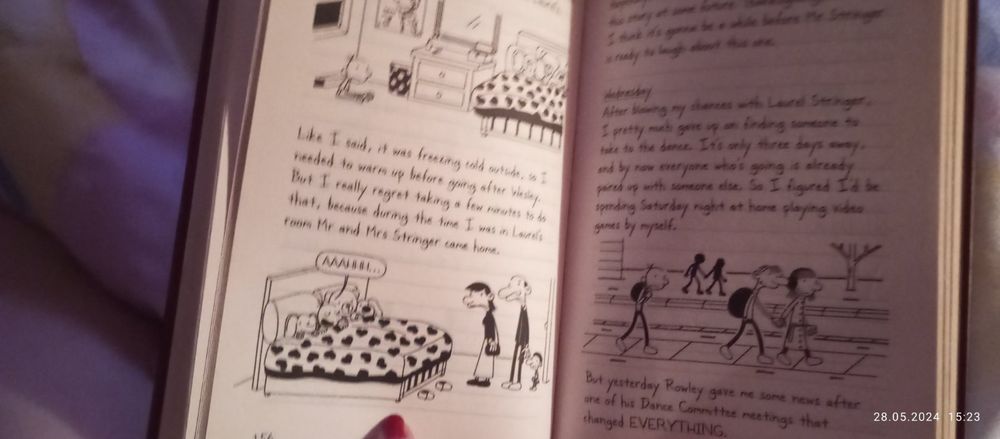 Like I said, it was freezing cold outside, so I
needed to warm up before going after Wesley.
But I really regret taking a few minutes to do
that, because during the time I was in Laurel's
room Mr and Mrs Stringer came home.
AAAHHH...
156
this story at some future
I think it's gonna be a while before Mr Stringer
is ready to laugh about this one.
Wednesday
After blowing my chances with Laurel Stringer,
I pretty much gave up on finding someone to
take to the dance. It's only three days away,
and by now everyone who's going is already
paired up with someone else. So I figured I'd be
spending Saturday night at home playing video
games by myself.
But yesterday Rowley gave me some news after
one of his Dance Committee meetings that
changed EVERYTHING.
28.05.2024 15:23